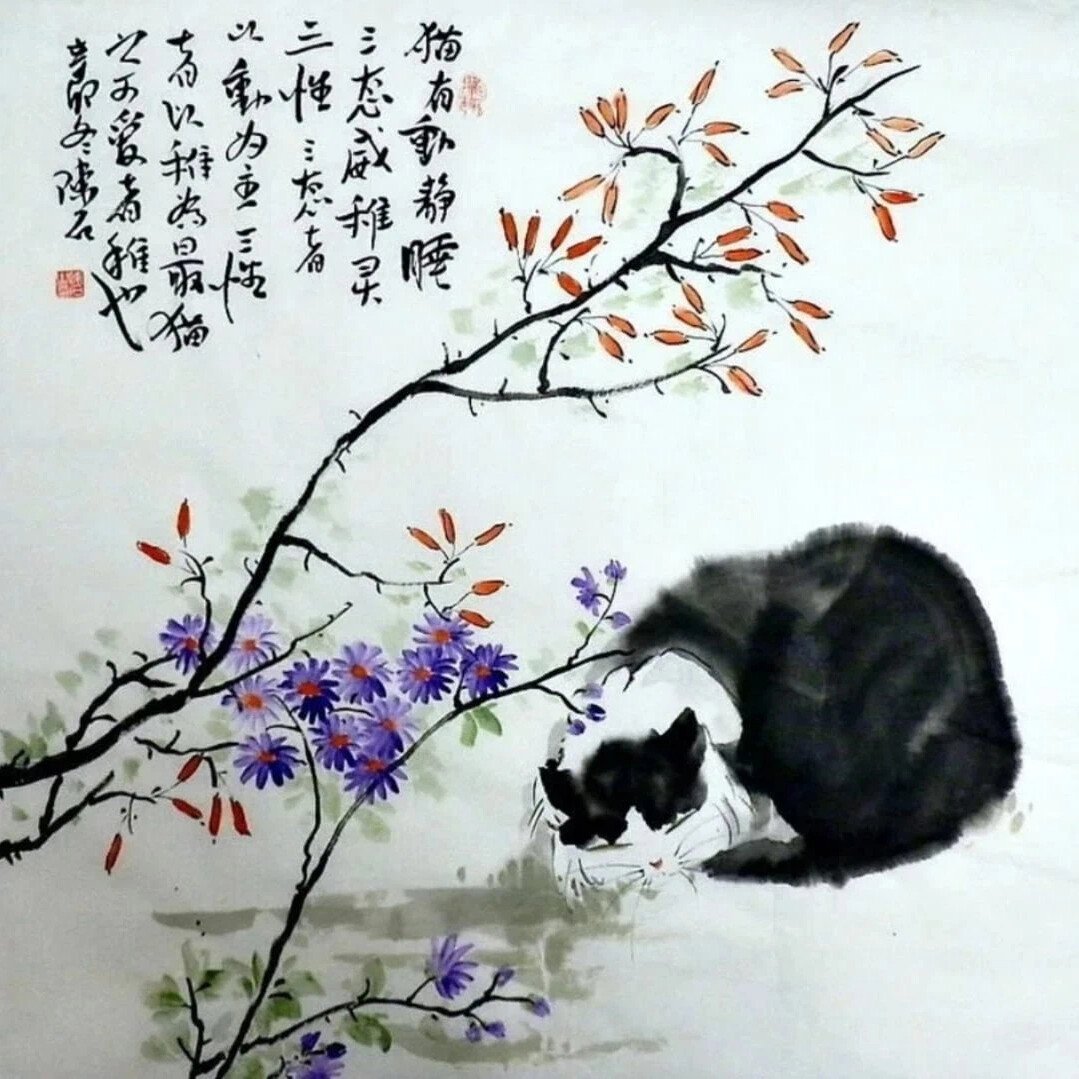 猫有動静睡
三态威稚灵
三性三态者
以動为主三性
者以稚为最猫
之可愛者稚也
辛卯冬陈石